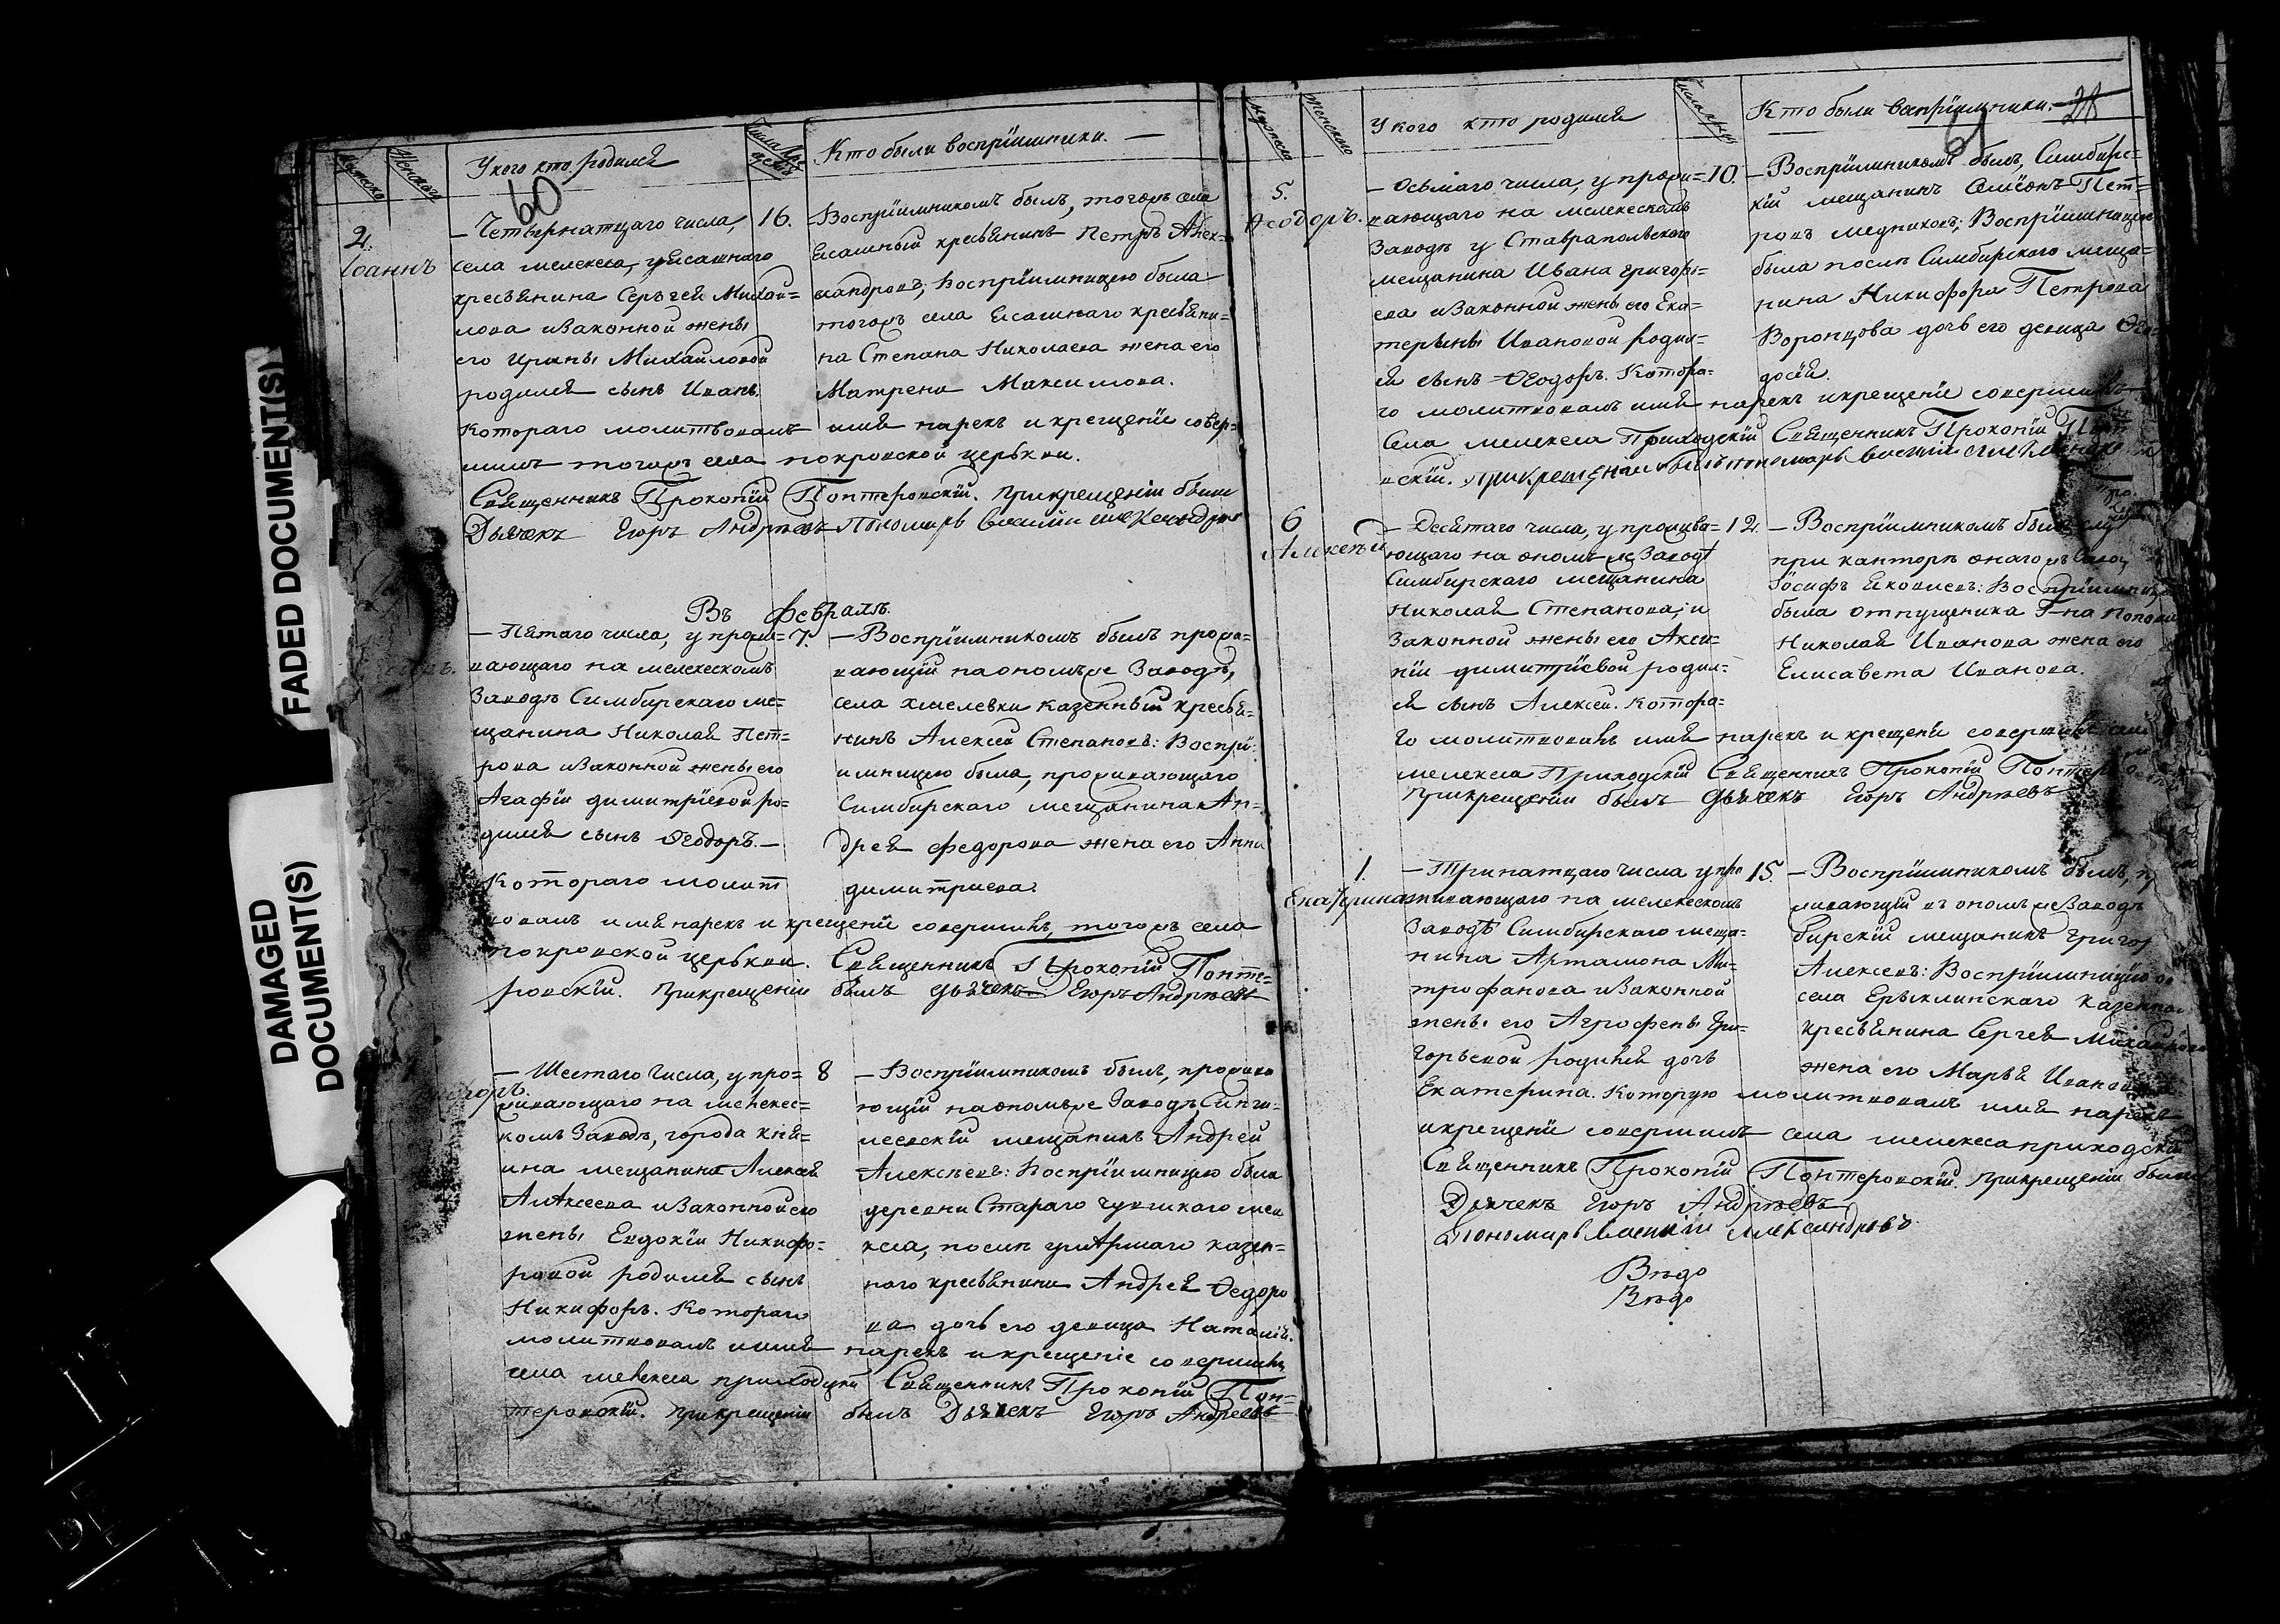 FADED DOCUMENT(S)
DAMAGED
DOCUMENT(S)
Мужеска
Женскаго
У кого кто родился
Кто были воспріимники. —
60
2.
Іоаннъ
— Четвернатцаго числа,
села мелекеса, у ясашнаго
кресьянина Сергѣя Михай=
лова и законной жены
его Ирины Михайловой
родился сынъ Иванъ.
16.
— Воспріимникомъ былъ, тогожъ села
ясашный кресьянинъ Петръ Алек=
сандровъ; Воспріимницею была
тогожъ села ясашнаго кресьяни=
на Степана Николаева жена его
Матрена Максимова.
Котораго молитвовалъ имя нарекъ и крещеніе совер=
шилъ тогожъ села покровской церькви.
Священникъ Прокопій Понтеровскій. При крещеніи были
Дьячекъ Егоръ Андрѣевъ Пономарь Василій Александровъ
Въ февралѣ.
— Пятаго числа, у прожи=
вающаго на мелекескомъ
Заводѣ Симбирскаго ме=
щанина Николая Пет=
рова и законной жены его
Агафіи димитріевой ро=
дился сынъ Ѳеодоръ. —
Котораго молит
7.
— Воспріимникомъ былъ прожи=
вающій на ономъже Заводѣ,
села хмелевки казенный кресья=
нинъ Алексѣй Степановъ: Воспрі=
имницею была, проживающаго
Симбирскаго мещанина Ан=
дрея федорова жена его Анна
димитриева.
вовалъ имя нарекъ и крещеніе совершилъ, тогожъ села
покровской церькви. Священникъ Прокопій Понте=
ровскій. При крещеніи былъ дьячекъ Егоръ Андрѣевъ
— Шестаго числа, у про=
живающаго на мелекес=
комъ Заводѣ, города кня=
ина мещанина Алексея
Алексеева и законной его
жены Евдокіи Никифо=
ровой родился сынъ
Никифоръ. Котораго
8
— Воспріимникомъ былъ, прожива
ющій на ономъже Заводѣ Синги=
леевскій мещанинъ Андрей
Алексѣевъ: Воспріимницею была
деревни Стараго чувшкаго меле
кеса, послѣ умершаго казен=
наго кресьянина Андрея Ѳедоро
ва дочь его девица Наталія.
молитвовалъ имя нарекъ и крещеніе совершилъ,
села мелекеса приходскій Священникъ Прокопій Пон=
теровскій. При крещеніи былъ Дьячекъ Егоръ Андреевъ
Мужеска
Женскаго
У кого кто родился
Кто были воспріимники. —
61
28
5.
Ѳеодоръ.
— Осьмаго числа, у прожи=
вающаго на мелекескомъ
Заводѣ у Ставрапольскаго
мещанина Ивана Григорь=
ева и законной жены его Ека=
терины Ивановой родил=
ся сынъ Ѳеодоръ. Котора=
10.
— Воспріимникомъ былъ, Симбирс=
кій мещанинъ Симіонъ Пет=
ровъ медниковъ; Воспріимницею
была послѣ Симбирского меща=
нина Никифора Петрова
Воронцова дочь его девица Ѳео=
досія.
го молитвовалъ имя нарекъ и крещеніе совершилъ
Села мелекеса Приходскій Священникъ Прокопій Понте
вскій. При крещеніи былъ пономарь Василій Александровъ
6
Алексѣй
— Десятаго числа, у прожива=
ющаго на ономъже Заводѣ
Симбирскаго мещанина
Николая Степанова, и
Законной жены его Акси=
ніи димитріевой родил=
ся сынъ Алексей. Котора=
12.
— Воспріимникомъ былъ
при канторѣ онагожъ
Іосифъ Яковлевъ: Воспріимниц
была отпущеника Г-на
Николая Иванова жена его
Елисавета Иванова.
го молитвовалъ имя нарекъ и крещеніе совершилъ
мелекеса Приходскій Священникъ Прокопій Понтер
При крещеніи былъ дьячекъ Егоръ Андрѣевъ
1.
Екатерина
— Тринатцаго числа у про
живающаго на мелекескомъ
Заводѣ Симбирскаго меща=
нина Артамона Ми=
трофанова и законной
жены его Агрофены Гри=
горьевой родился дочь
Екатерина. Которую
15.
— Воспріимникомъ былъ, п
живающій въ ономъже Заводѣ
бирскій мещанинъ Григор
Алексеевъ: Воспріимницею
села Ерыклинскаго казенна
кресьянина Сергея Михайлова
жена его Марья Иванова
молитвовалъ имя нарекъ
и крещеніе совершилъ села мелекеса приходскій
Священникъ Прокопій Понтеровскій. При крещеніи были
Дьячекъ Егоръ Андрѣевъ
Пономарь Василій Александровъ.